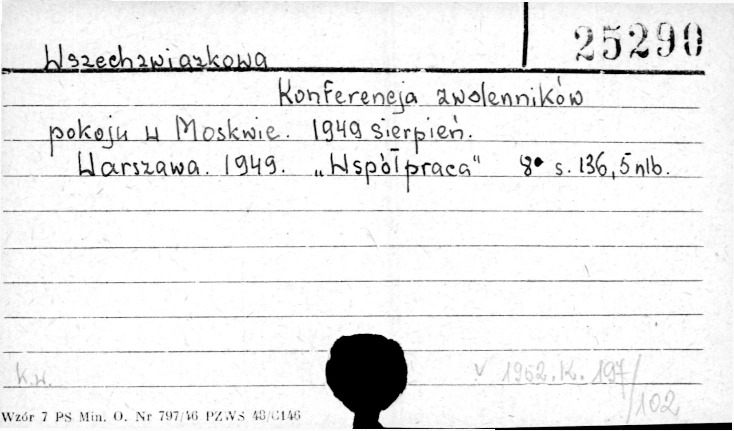 25290
Wszechzwiązkowa
Konferencja zwolenników
pokoju w Moskwie. 1949 sierpień.
Warszawa. 1949. „Współpraca" 8° s. 136, 5 nlb.
K.W.
V 1952. K. 197/102
Wzór 7 PS Min. O. Nr 797/46 PZWS 48/C146